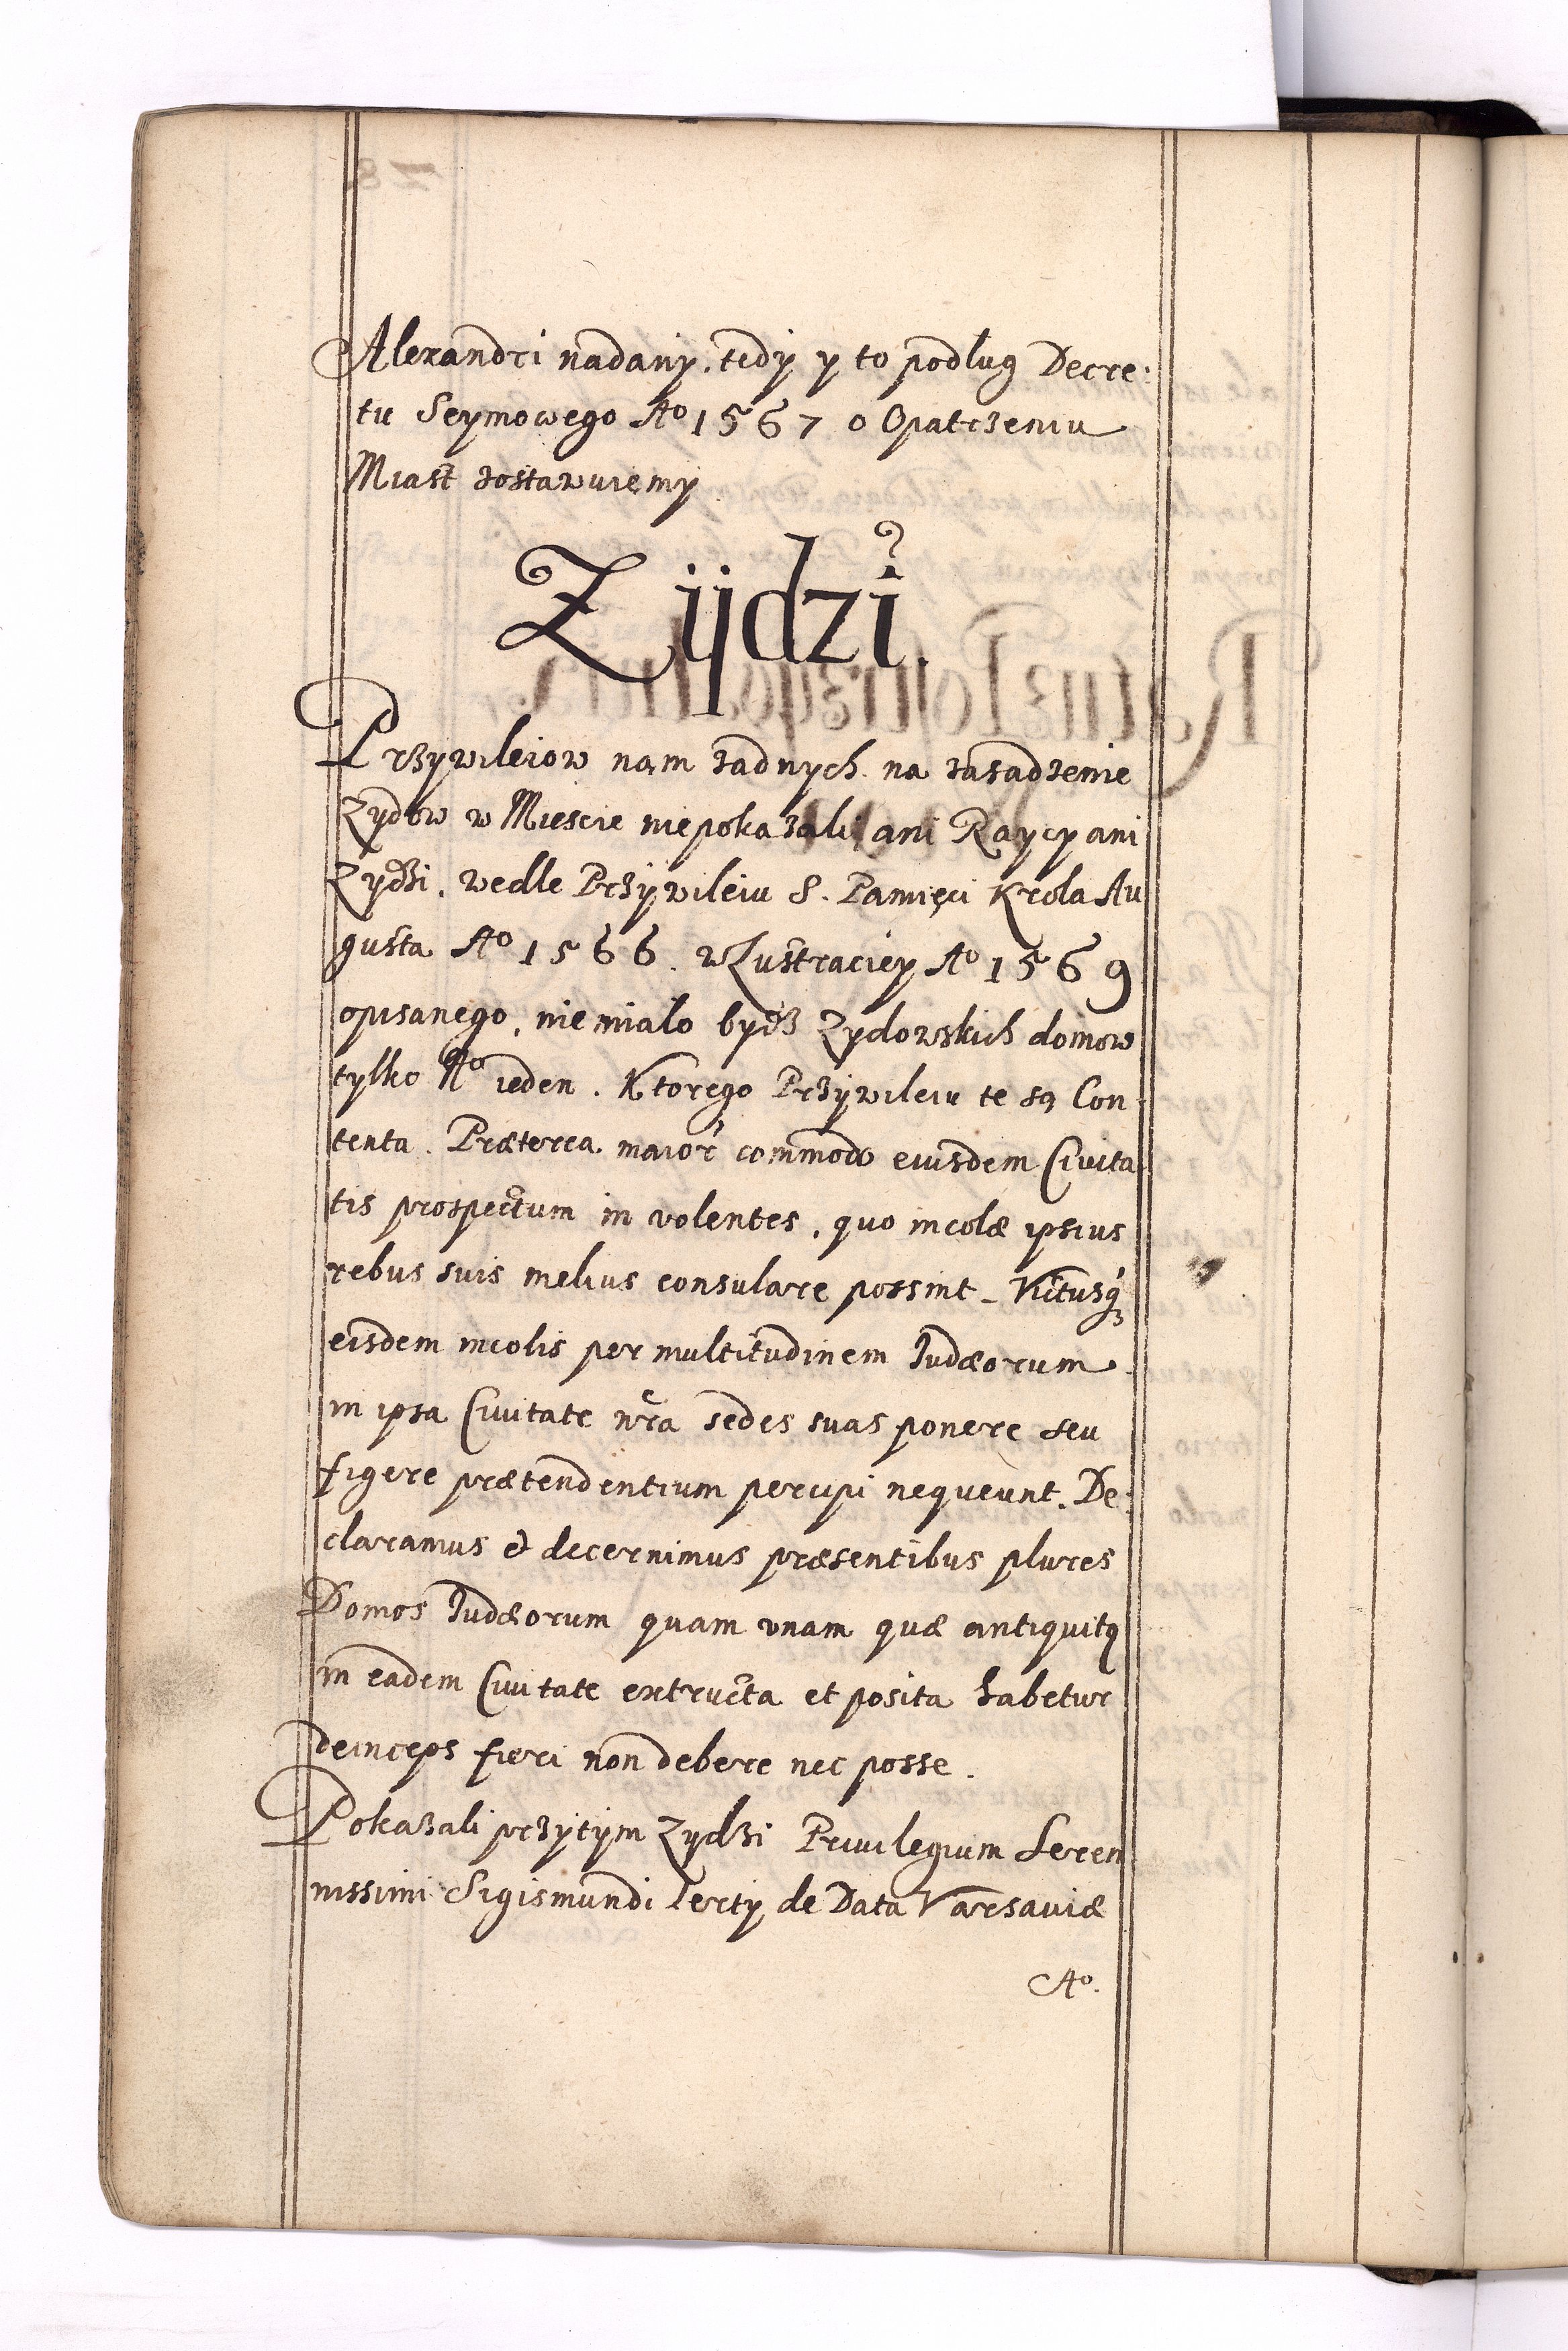 Alexandri nadany, tedy y to podług Decre:
tu Seymowego Aº 1567 o Opatrzeniu
Miast zostawuiemy
Zÿdzi.
Przywileiow nam żadnych na zasadzenie
Zydow w Miescie niepokazali ani Raycy ani
Zydzi, wedle Przywileiu S. Pamięci Krola Au
gusta Aº 1566. w Lustraciey Aº 1569
opisanego, niemiało bydz Zydowskich domow
tylko Nº ieden. Ktorego Przywileiu te są Con-
tenta. Præterea maior commodo eiusdem Ciuita
tis prospectum in volentes, quo incolæ ipsius
rebus suis melius consulare possint - Victusq́ꝫ
eisdem incolis per multitudinem Iudæorum
in ipsa Ciuitate nr̃a sedes suas ponere seu
figere prætendentium percipi nequeunt. De:
claramus et decernimus præsentibus plures
Domos Iudæorum quam vnam quæ antiquitꝗ
in eadem Ciuitate extructa et posita habetur
deinceps fieri non debere nec posse.
Pokazali przytym Zydzi Priuilegium Seren
nissimi Sigismundi Terty de Data Varsauiæ
Aº.